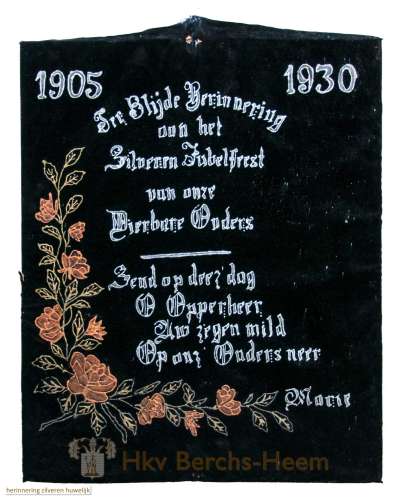 1905 1930
Ter Blijde Herinnering
van het
Zilveren Jubelfeest
van onze
Dierbare Ouders
Zend op deez' dag
O Opperheer
Uw zegen mild
Op onz' Ouders neer
Marie
Hkv Berchs-Heem
herinnering zilveren huwelijk